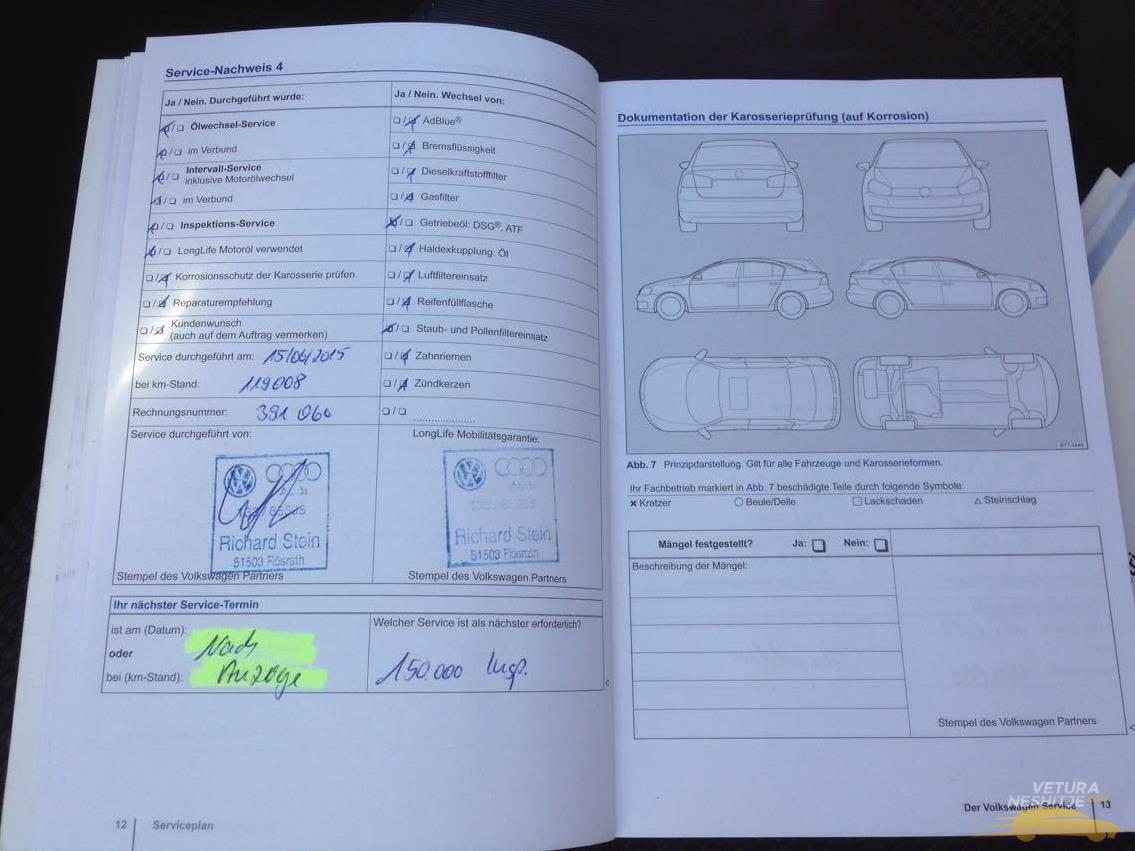 Service-Nachweis 4
Ja / Nein. Durchgeführt wurde:
Ölwechsel-Service
im Verbund
Intervall-Service
inklusive Motorölwechsel
im Verbund
Inspektions-Service
LongLife Motoröl verwendet
Korrosionsschutz der Karosserie prüfen
Reparaturempfehlung
Kundenwunsch
(auch auf dem Auftrag vermerken)
Service durchgeführt am: 15/06/2015
bei km-Stand: 119008
Rechnungsnummer: 391 060
Ja / Nein. Wechsel von:
AdBlue®
Bremsflüssigkeit
Dieselkraftstofffilter
Gasfilter
Getriebeöl: DSG®, ATF
Haldexkupplung: Öl
Luftfiltereinsatz
Reifenfüllflasche
Staub- und Pollenfiltereinsatz
Zahnriemen
Zündkerzen
Service durchgeführt von:
Audi
Richard Stein
51503 Rösrath
Stempel des Volkswagen Partners
LongLife Mobilitätsgarantie:
Audi
Richard Stein
51503 Rösrath
Stempel des Volkswagen Partners
Ihr nächster Service-Termin
ist am (Datum):
oder
bei (km-Stand):
Nach
Anzeige
Welcher Service ist als nächster erforderlich?
150.000 Insp.
12 Serviceplan
Dokumentation der Karosserieprüfung (auf Korrosion)
Abb. 7 Prinzipdarstellung. Gilt für alle Fahrzeuge und Karosserieformen.
Ihr Fachbetrieb markiert in Abb. 7 beschädigte Teile durch folgende Symbole:
Kratzer Beule/Delle Lackschaden Steinschlag
Mängel festgestellt? Ja: Nein:
Beschreibung der Mängel:
Stempel des Volkswagen Partners
Der Volkswagen Service 13
VETURA
NESHITJE